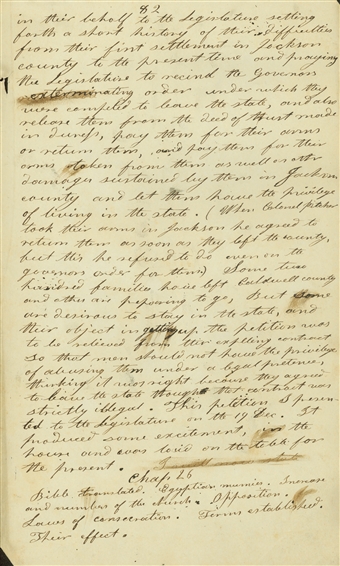 82
in their behalf to the Legislature setting
forth a short history of their difficulties
from their first settlement in Jackson
county to the present time and praying
the Legislature to recind the Governors
exterminating order under which they
were compled to leave the state, and also
release them from the deed of trust made
in duress, pay them for their arms
or return them, and pay them for their
arms taken from them as well as othr
damages sustained by them in Jackson
county and let them have the privilege
of living in the state. (When Colonel pitcher
took their arms in Jackson he agreed to
return them as soon as they left the county,
but this he refused to do even on the
governors order for them) Some two
hundred families have left Caldwell county
and others are prepering to go, But some
are desirous to stay in the state, and
their object in getting up the petition was
to be relieved from their expelling contract
so that men should not have the privilege
of abusing them under a legal pretence,
thinking it was right because they agreed
to leave the state though that contract was
strictly illegal. This petition I presen
ted to the Legislature on the 19 Dec. It
produced some excitement, in the
house and was laid on the table for
the present.
Chap. 26
Bible translated. Egyptian mumies. Increase
and numbers of the church. Opposition.
Laws of consecration. Terms established.
Their effect.